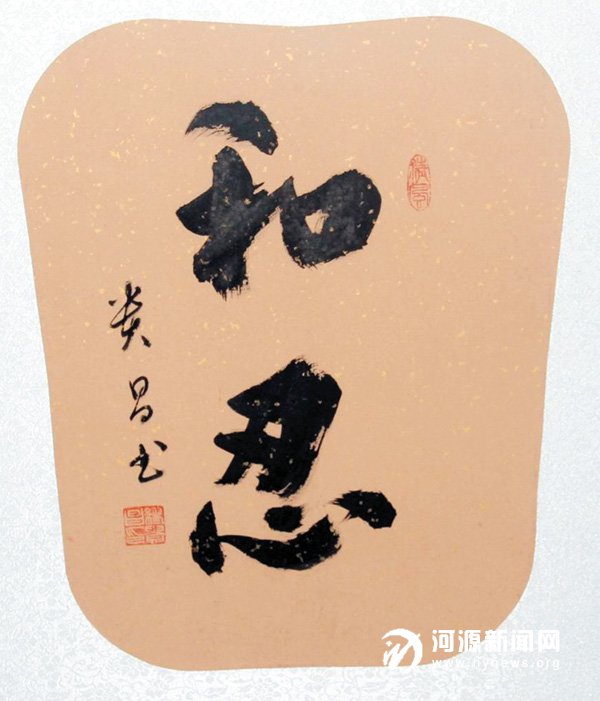 和忍
贵昌书
河源新闻网
www.hynews.org